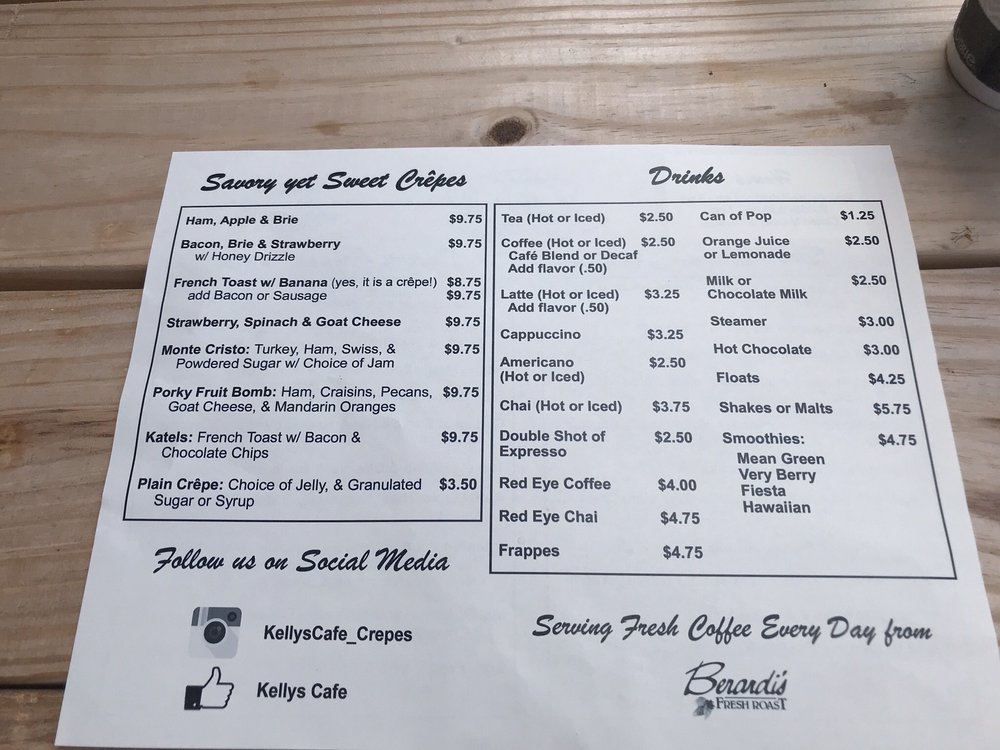 Savory yet Sweet Crêpes
Ham, Apple & Brie $9.75
Bacon, Brie & Strawberry $9.75
w/ Honey Drizzle
French Toast w/ Banana (yes, it is a crêpe!) $8.75
add Bacon or Sausage $9.75
Strawberry, Spinach & Goat Cheese $9.75
Monte Cristo: Turkey, Ham, Swiss, & $9.75
Powdered Sugar w/ Choice of Jam
Porky Fruit Bomb: Ham, Craisins, Pecans, $9.75
Goat Cheese, & Mandarin Oranges
Katels: French Toast w/ Bacon & $9.75
Chocolate Chips
Plain Crêpe: Choice of Jelly, & Granulated $3.50
Sugar or Syrup
Drinks
Tea (Hot or Iced) $2.50
Coffee (Hot or Iced) $2.50
Café Blend or Decaf
Add flavor (.50)
Latte (Hot or Iced) $3.25
Add flavor (.50)
Cappuccino $3.25
Americano $2.50
(Hot or Iced)
Chai (Hot or Iced) $3.75
Double Shot of $2.50
Expresso
Red Eye Coffee $4.00
Red Eye Chai $4.75
Frappes $4.75
Can of Pop $1.25
Orange Juice $2.50
or Lemonade
Milk or $2.50
Chocolate Milk
Steamer $3.00
Hot Chocolate $3.00
Floats $4.25
Shakes or Malts $5.75
Smoothies: $4.75
Mean Green
Very Berry
Fiesta
Hawaiian
Follow us on Social Media
KellysCafe_Crepes
Kellys Cafe
Serving Fresh Coffee Every Day from
Berardi's
FRESH ROAST